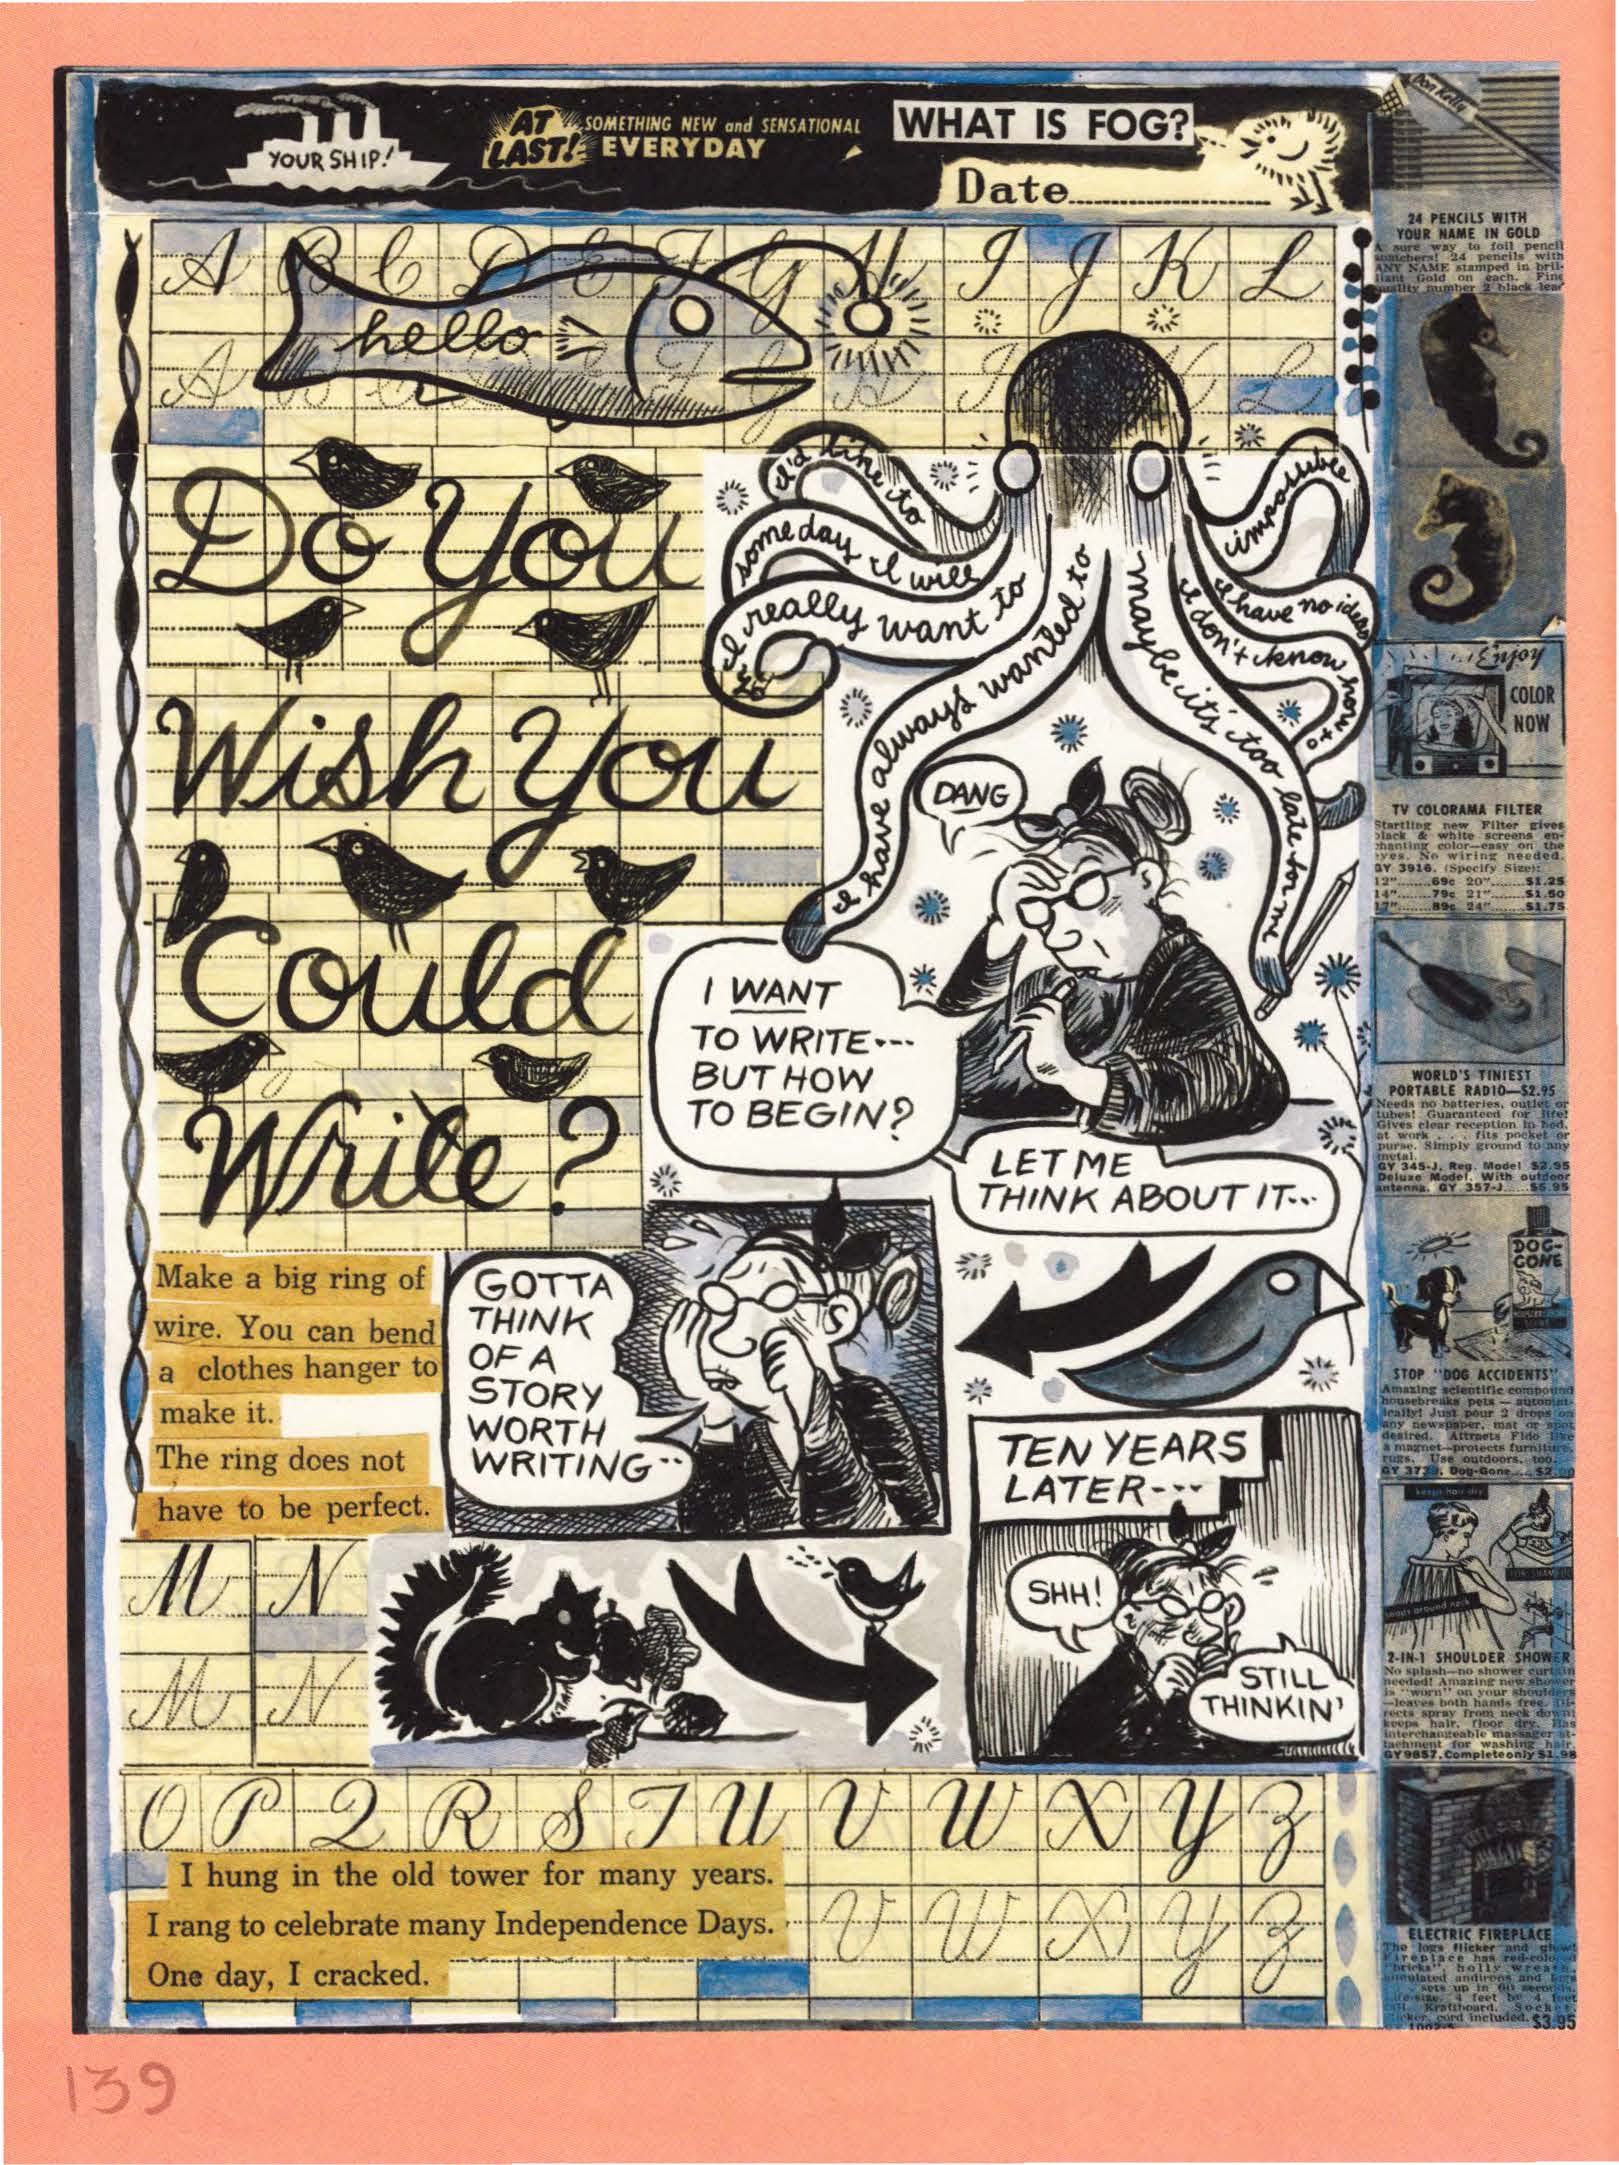 YOUR SHIP!
AT LAST!
SOMETHING NEW and SENSATIONAL
EVERYDAY
WHAT IS FOG?
Date
A B C D E F G H I J K L
hello
A B C D E F G H I J K L
Do You
Wish You
Could
Write?
I'd like to
some day I will
I really want to
I have always wanted to
maybe it's too late for me
I don't know how to
I have no ideas
impossible
DANG
I WANT
TO WRITE---
BUT HOW
TO BEGIN?
LET ME
THINK ABOUT IT...
Make a big ring of
wire. You can bend
a clothes hanger to
make it.
The ring does not
have to be perfect.
GOTTA
THINK
OF A
STORY
WORTH
WRITING--
TEN YEARS
LATER----
SHH!
STILL
THINKIN'
M N
M N
O P Q R S T U V W X Y Z
I hung in the old tower for many years.
I rang to celebrate many Independence Days.
One day, I cracked.
V W X Y Z
Don Kelly
24 PENCILS WITH
YOUR NAME IN GOLD
A sure way to foil pencil
snatchers! 24 pencils with
ANY NAME stamped in bril-
liant Gold on each. Fine
quality number 2 black lead
COLOR
NOW
TV COLORAMA FILTER
Startling new Filter gives
black & white screens en-
chanting color—easy on the
eyes. No wiring needed.
GY 3916. (Specify Size):
12"......69c 20"........$1.25
14"......79c 21"........$1.50
17"......89c 24"........$1.75
WORLD'S TINIEST
PORTABLE RADIO—$2.95
Needs no batteries, outlet or
tubes! Guaranteed for life!
Gives clear reception in bed,
at work . . . fits pocket or
purse. Simply ground to any
metal.
GY 345-J, Reg. Model $2.95
Deluxe Model, With outdoor
antenna. GY 357-J......$5.95
DOG-
GONE
STOP "DOG ACCIDENTS"
Amazing scientific compound
housebreaks pets — automat-
ically! Just pour 2 drops on
any newspaper, mat or spot
desired. Attracts Fido like
a magnet—protects furniture,
rugs. Use outdoors, too.
Dog-Gone
keeps hair dry
FOR SHAMPOO
snaps around neck
2-IN-1 SHOULDER SHOWER
No splash—no shower curtain
needed! Amazing new shower
is "worn" on your shoulders
—leaves both hands free. Di-
rects spray from neck down;
keeps hair, floor dry. Has
interchangeable massager at-
tachment for washing hair.
GY 9857. Complete only $1.98
ELECTRIC FIREPLACE
The logs flicker and glow!
Fireplace has red-colored
"bricks", holly wreath,
simulated andirons and logs
sets up in 60 seconds.
Life-size, 4 feet by 4 feet
Kraftboard. Socket,
cord included. $3.95
139